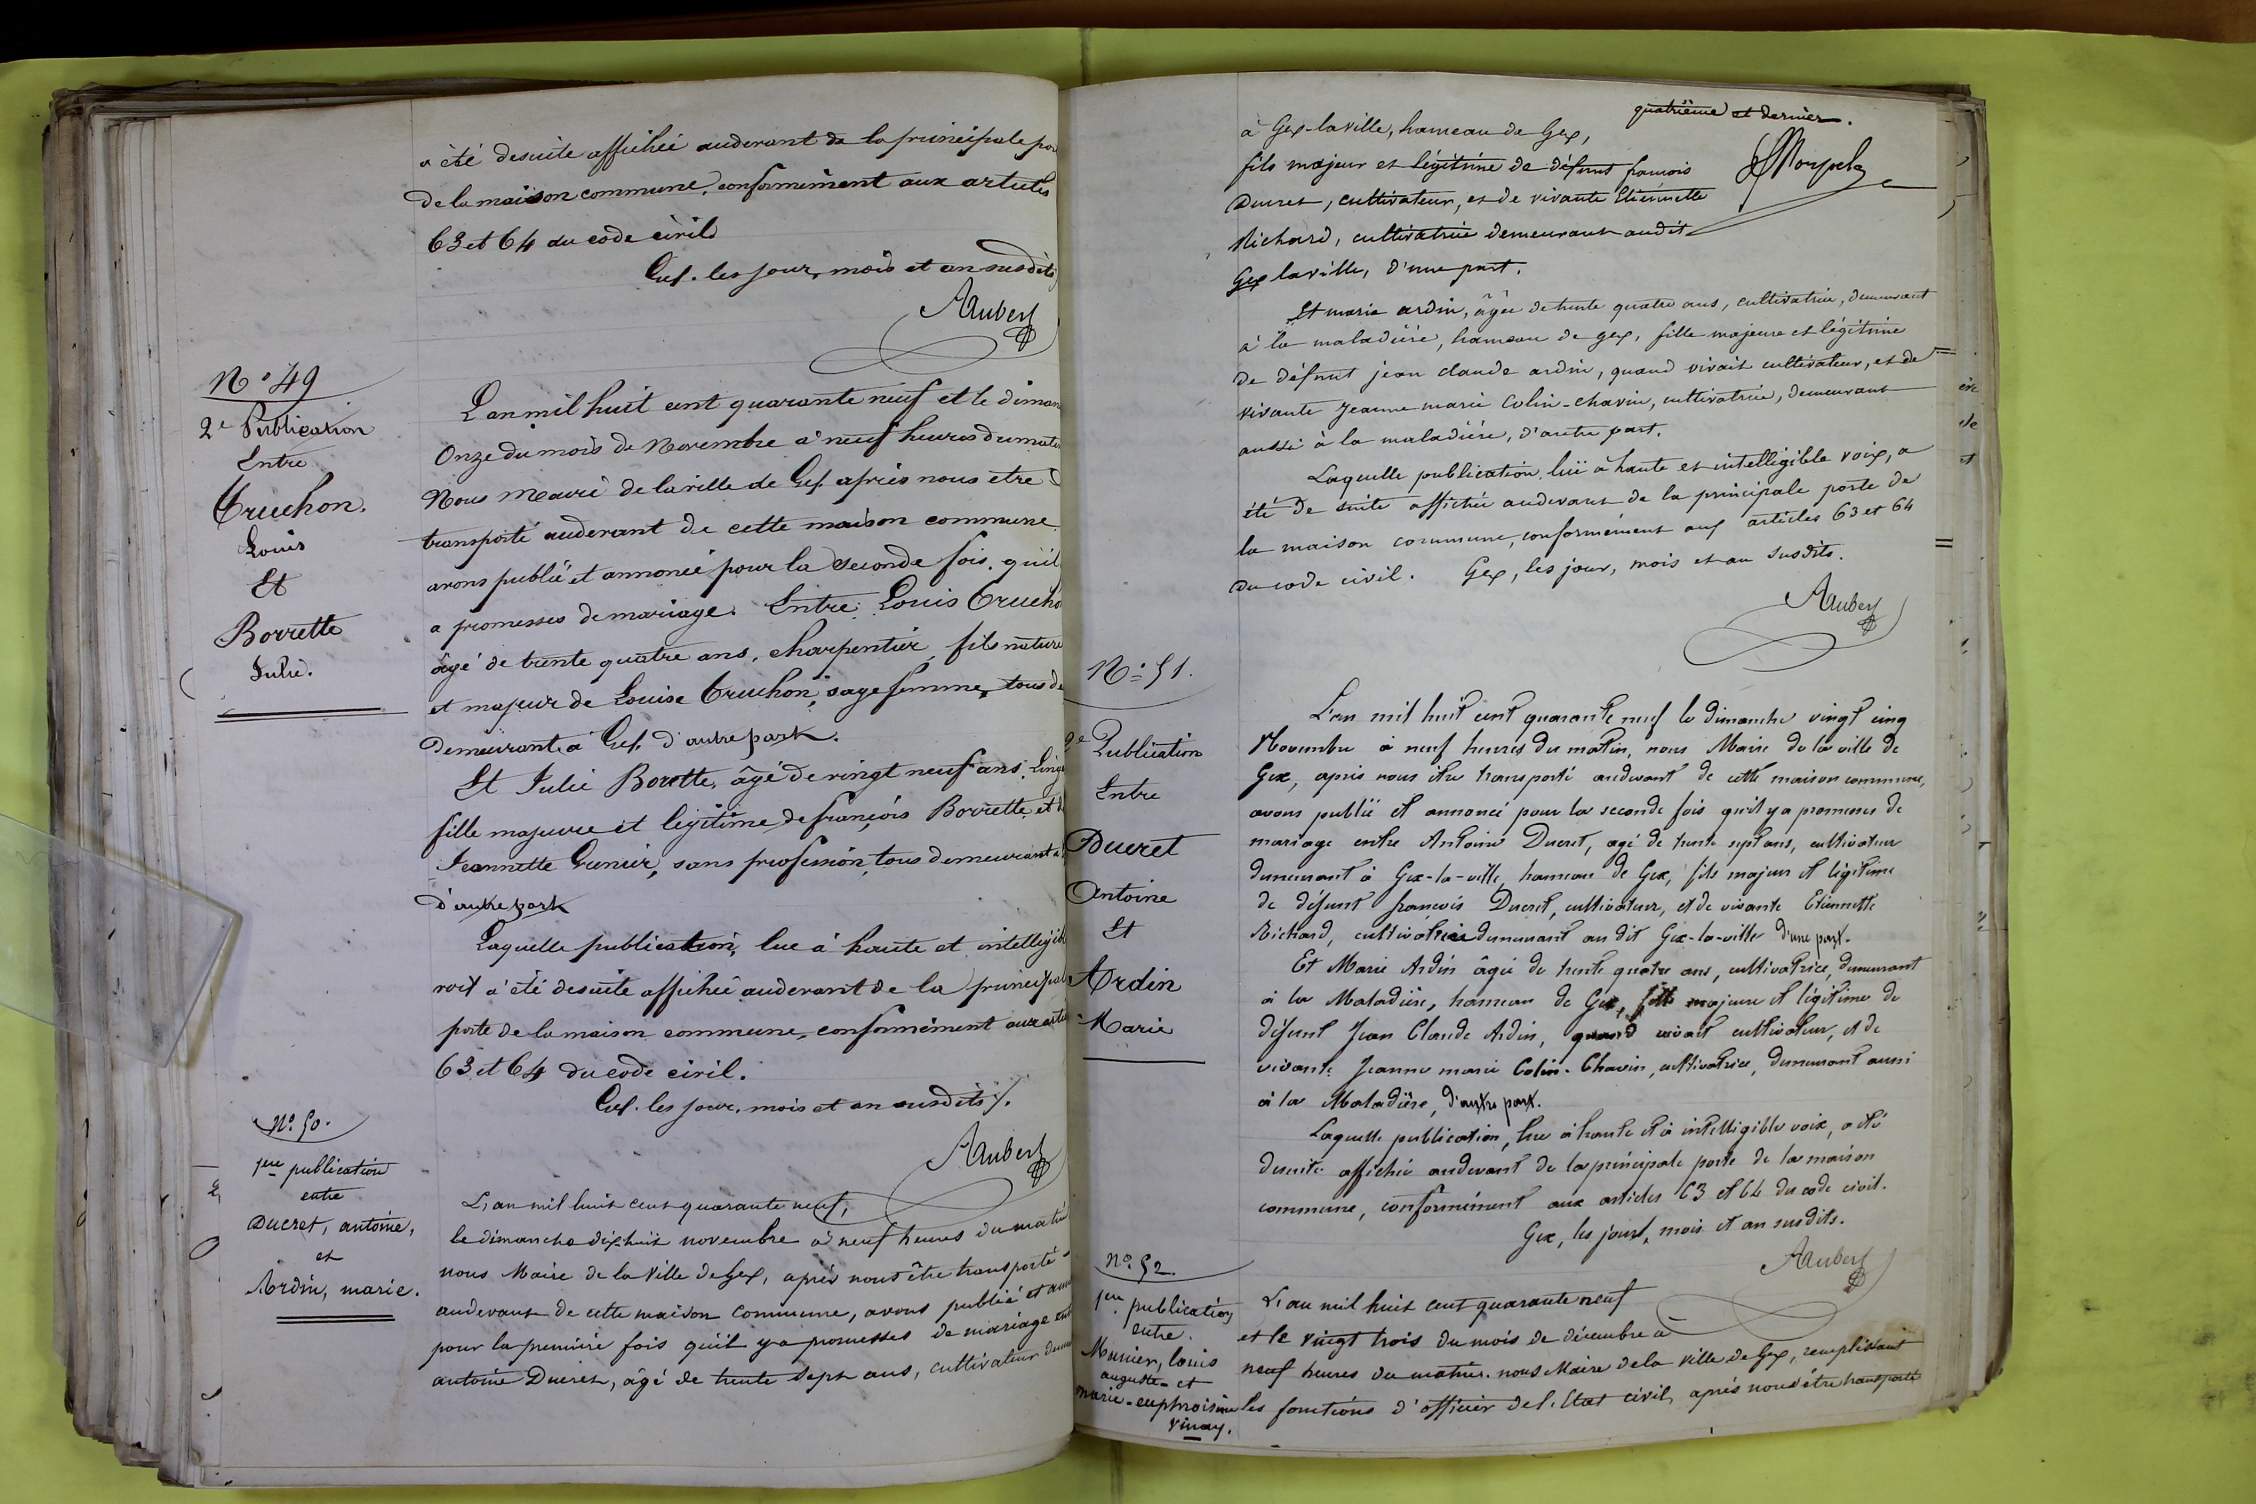 a été desuite affichée audevant de la principale por
de la maison commune, conformément aux articles
63 et 64 du code civil
Gex. les jour, mois et an susdits
AAubert
N° 49
2e Publication
Entre
Truchon.
Louis
Et
Borrette
Julie.
L'an mil huit cent quarante neuf et le diman
Onze du mois de Novembre a neuf heures du matin
Nous Maire de la ville de Gex après nous etre
transporté audevant de cette maison commune
avons publié et annoncé pour la seconde fois, qu'il
a promesses de mariage. Entre Louis Trucho
âgé de trente quatre ans, charpentier, fils nature
et majeur de Louise Truchon, sage femme, tous de
demeurant à Gex, d'autre part.
Et Julie Borrette, âgé de vingt neuf ans, Linge
fille majeure et légitime de françois Borrette, et d
Jeannette Grenier, sans profession, tous demeurant a
d'autre part
Laquelle publication, lue à haute et intelligib
voix a été desuite affichée audevant de la principal
porte de la maison commune, conformément aux artic
63 et 64 du code civil.
Gex. les jour, mois et an susdits /.
AAubert
N° 50.
1ere publication
entre
Ducret, antoine,
et
Ardin, marie.
L'an mil huit cent quarante neuf,
le dimanche dix huit novembre à neuf heures du matin
nous Maire de la Ville de Gex, après nous être transporté
audevant de cette maison commune, avons publié et ann
pour la première fois qu'il y a promesses de mariage ent
antoine Ducret, âgé de trente sept ans, cultivateur deme
quatrième et dernier.
à Gex-la-ville, hameau de Gex,
fils majeur et légitime de défunt françois
Ducret, cultivateur, et de vivante Etiennette
Richard, cultivatrice demeurant audit
Gex la ville, d'une part.
Et marie ardin, âgée de trente quatre ans, cultivatrice, demeurant
à la maladière, hameau de gex, fille majeure et légitime
de défunt jean claude ardin, quand vivait cultivateur, et de
vivante Jeanne marie Colin-chavin, cultivatrice, demeurant
aussi à la maladière, d'autre part.
Laquelle publication, lue à haute et intelligible voix, a
été de suite affichée audevant de la principale porte de
la maison commune, conformément aux articles 63 et 64
du code civil. Gex, les jour, mois et an susdits.
AAubert
N° 51.
2e Publication
Entre
Ducret
Antoine
Et
Ardin
Marie
L'an mil huit cent quarante neuf le dimanche vingt cinq
Novembre à neuf heures du matin, nous Maire de la ville de
Gex, après nous être transporté audevant de cette maison commune,
avons publié et annoncé pour la seconde fois qu'il y a promesses de
mariage entre Antoine Ducret, agé de trente sept ans, cultivateur
demeurant à Gex-la-ville, hameau de Gex, fils majeur et légitime
de défunt francois Ducret, cultivateur, et de vivante Etiennette
Richard, cultivatrice demeurant au dit Gex-la-ville d'une part.
Et Marie Ardin âgée de trente quatre ans, cultivatrice, demeurant
à la Maladière, hameau de Gex, fille majeure et légitime de
défunt Jean Claude Ardin, quand vivait cultivateur, et de
vivante Jeanne marie Colin-Chavin, cultivatrice, demeurant aussi
à la Maladière, d'autre part.
Laquelle publication, lue à haute et à intelligible voix, a été
desuite affichée audevant de la principale porte de la maison
commune, conformément aux articles 63 et 64 du code civil.
Gex, les jours, mois et an susdits.
AAubert
N° 52.
1ere publication
entre.
Munier, louis
auguste et
marie-euphroisine
Vinay.
L'an mil huit cent quarante neuf
et le vingt trois du mois de décembre à
neuf heures du matin. nous Maire de la Ville de Gex, remplissant
les fonctions d'officier de l'Etat civil, après nous être transporté